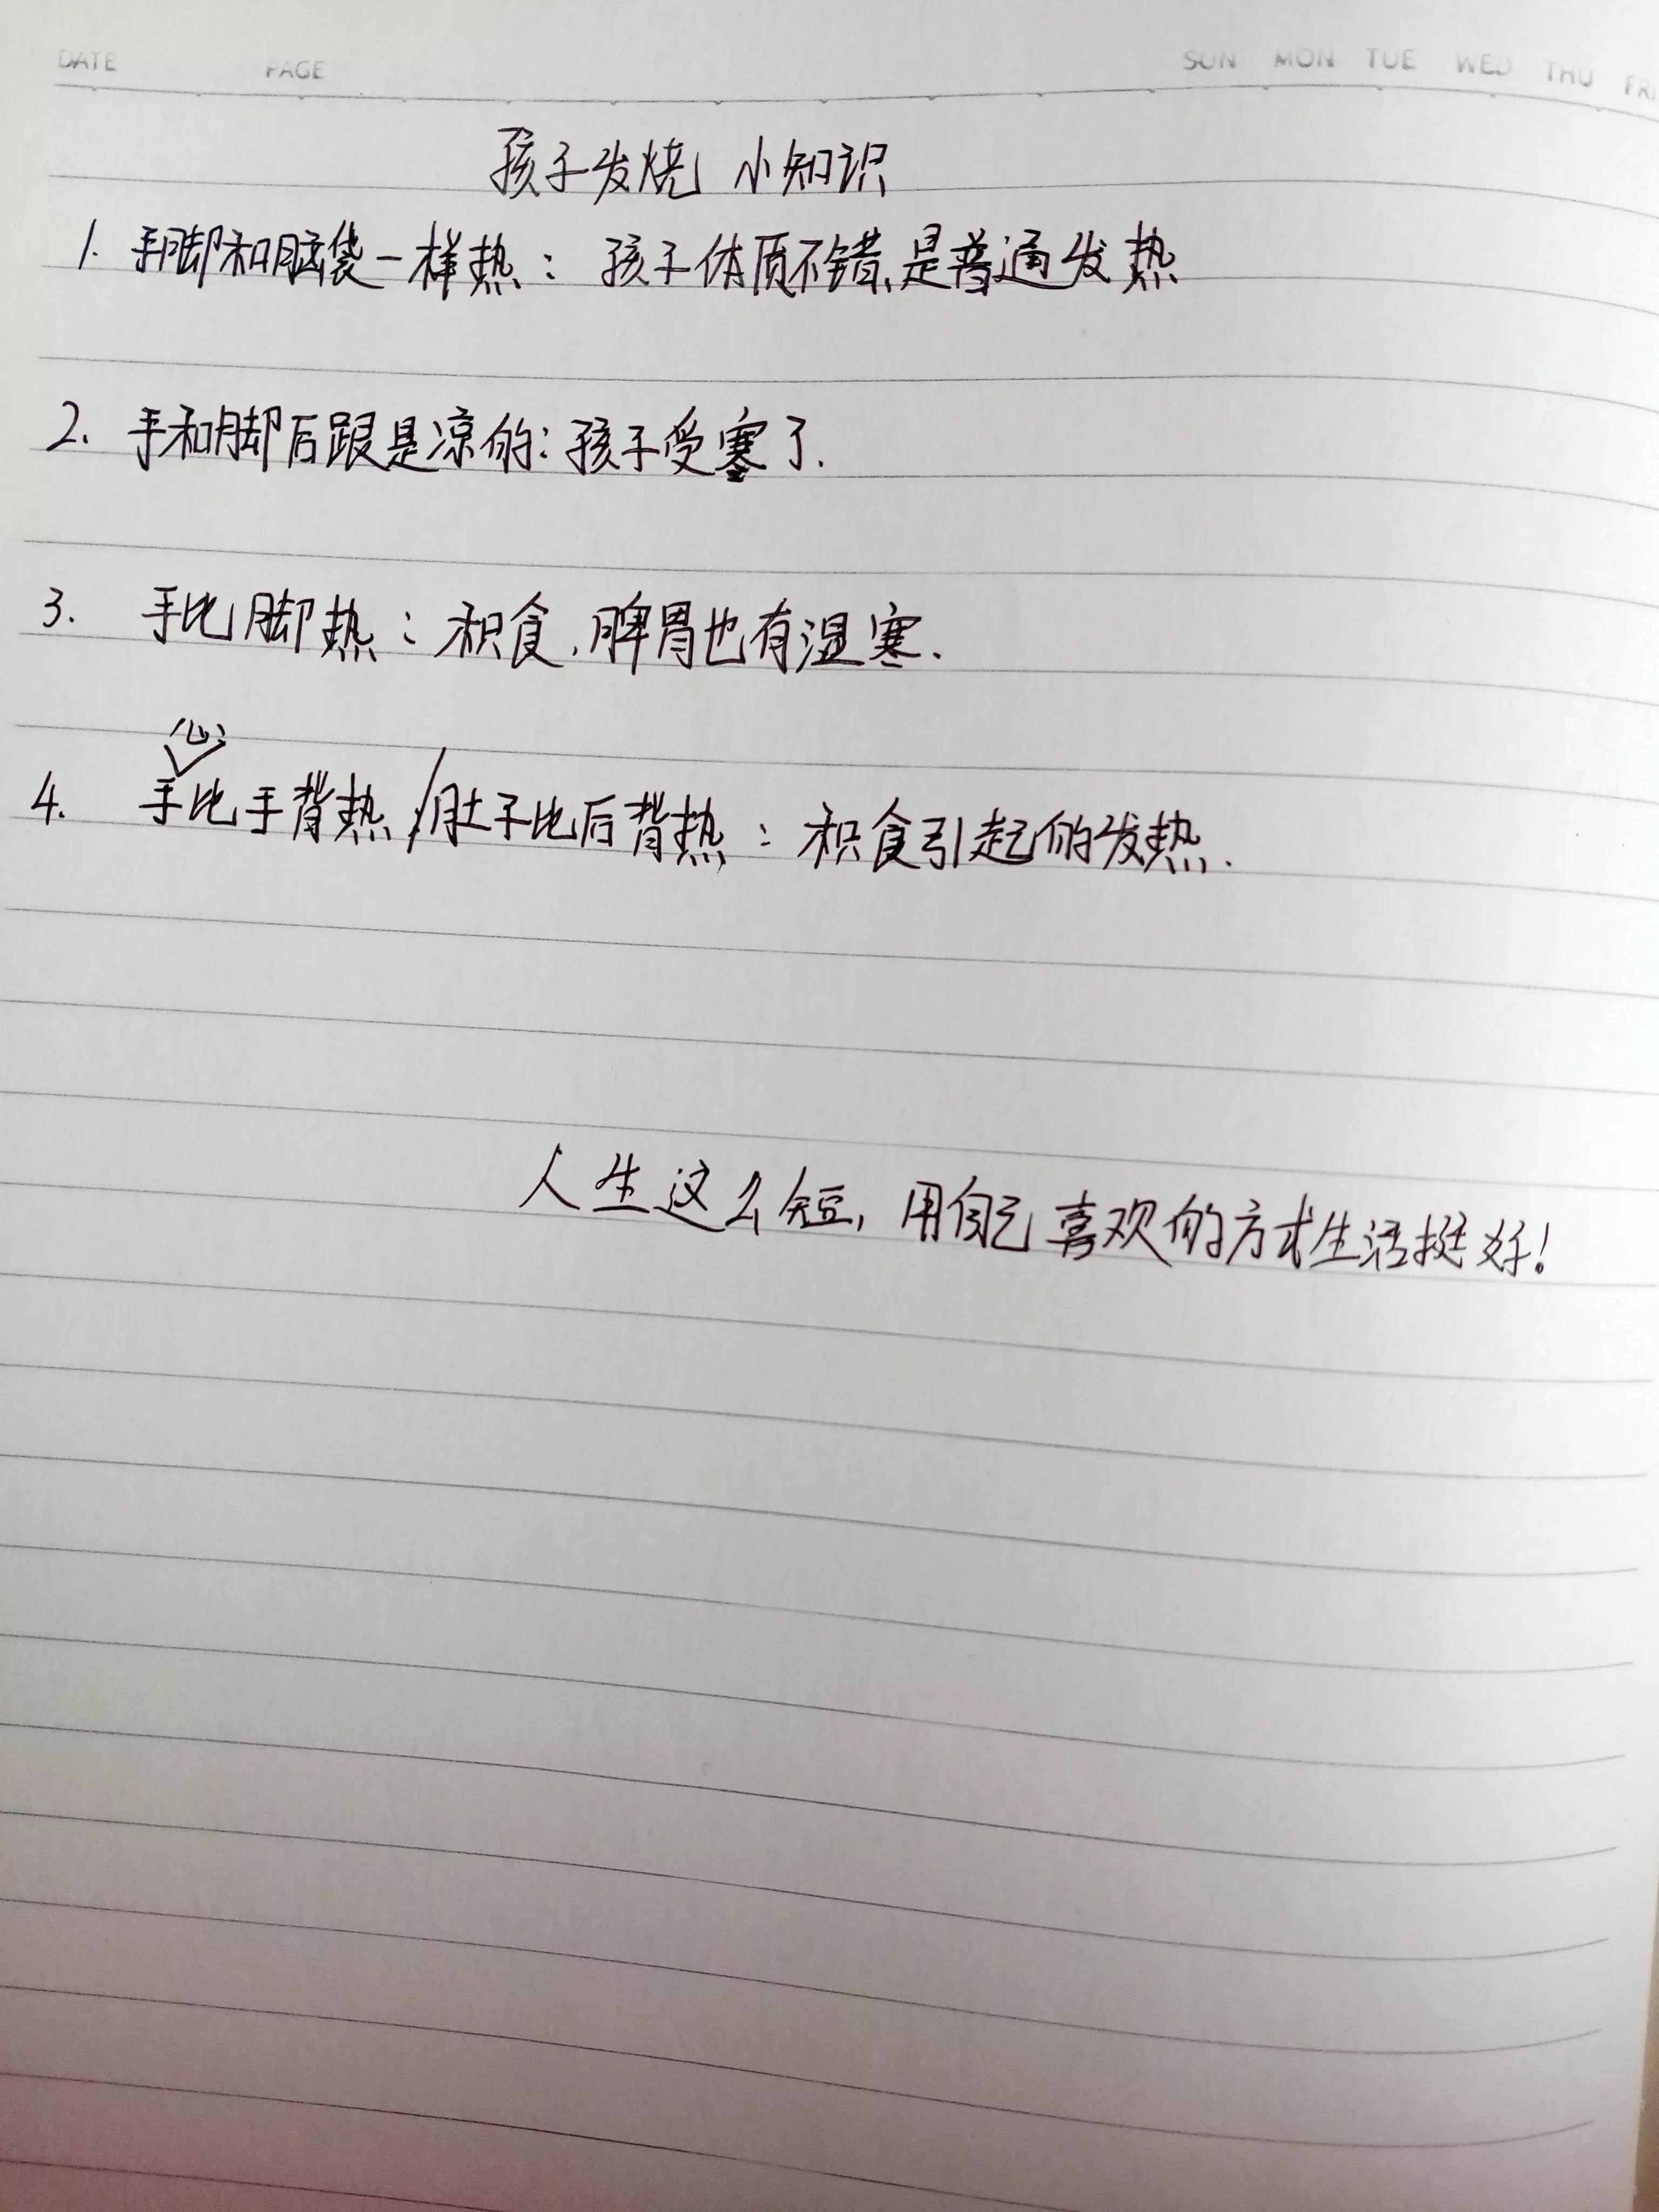 DATE PAGE SUN MON TUE WED THU FRI
孩子发烧 小知识
1. 手脚和脑袋一样热：孩子体质不错,是普通发热
2. 手和脚后跟是凉的：孩子受寒了.
3. 手比脚热：积食,脾胃也有湿寒.
心
4. 手比手背热/肚子比后背热：积食引起的发热.
人生这么短,用自己喜欢的方式生活挺好!